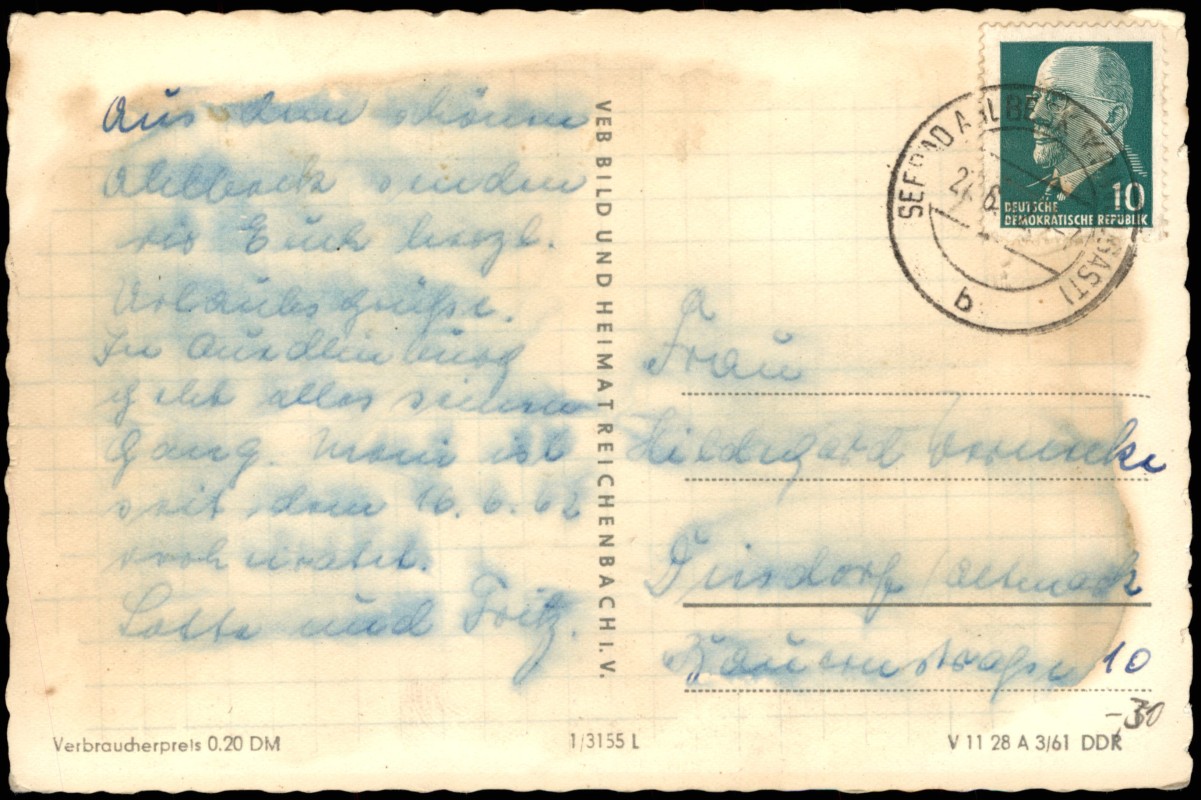 Aus dem schönen
Ahlbeck senden
wir Euch herzl.
Urlaubsgrüße.
In
geht alles seinen
Gang. ist
seit dem 16.6.62
verheiratet.
Lotte und Fritz.
VEB BILD UND HEIMAT REICHENBACH I. V.
SEEBAD AHLBECK
b
10
DEUTSCHE
DEMOKRATISCHE REPUBLIK
Frau
Hildegard
/Altmark
Bauernstraße 10
-30
Verbraucherpreis 0.20 DM
1/3155 L
V 11 28 A 3/61 DDR